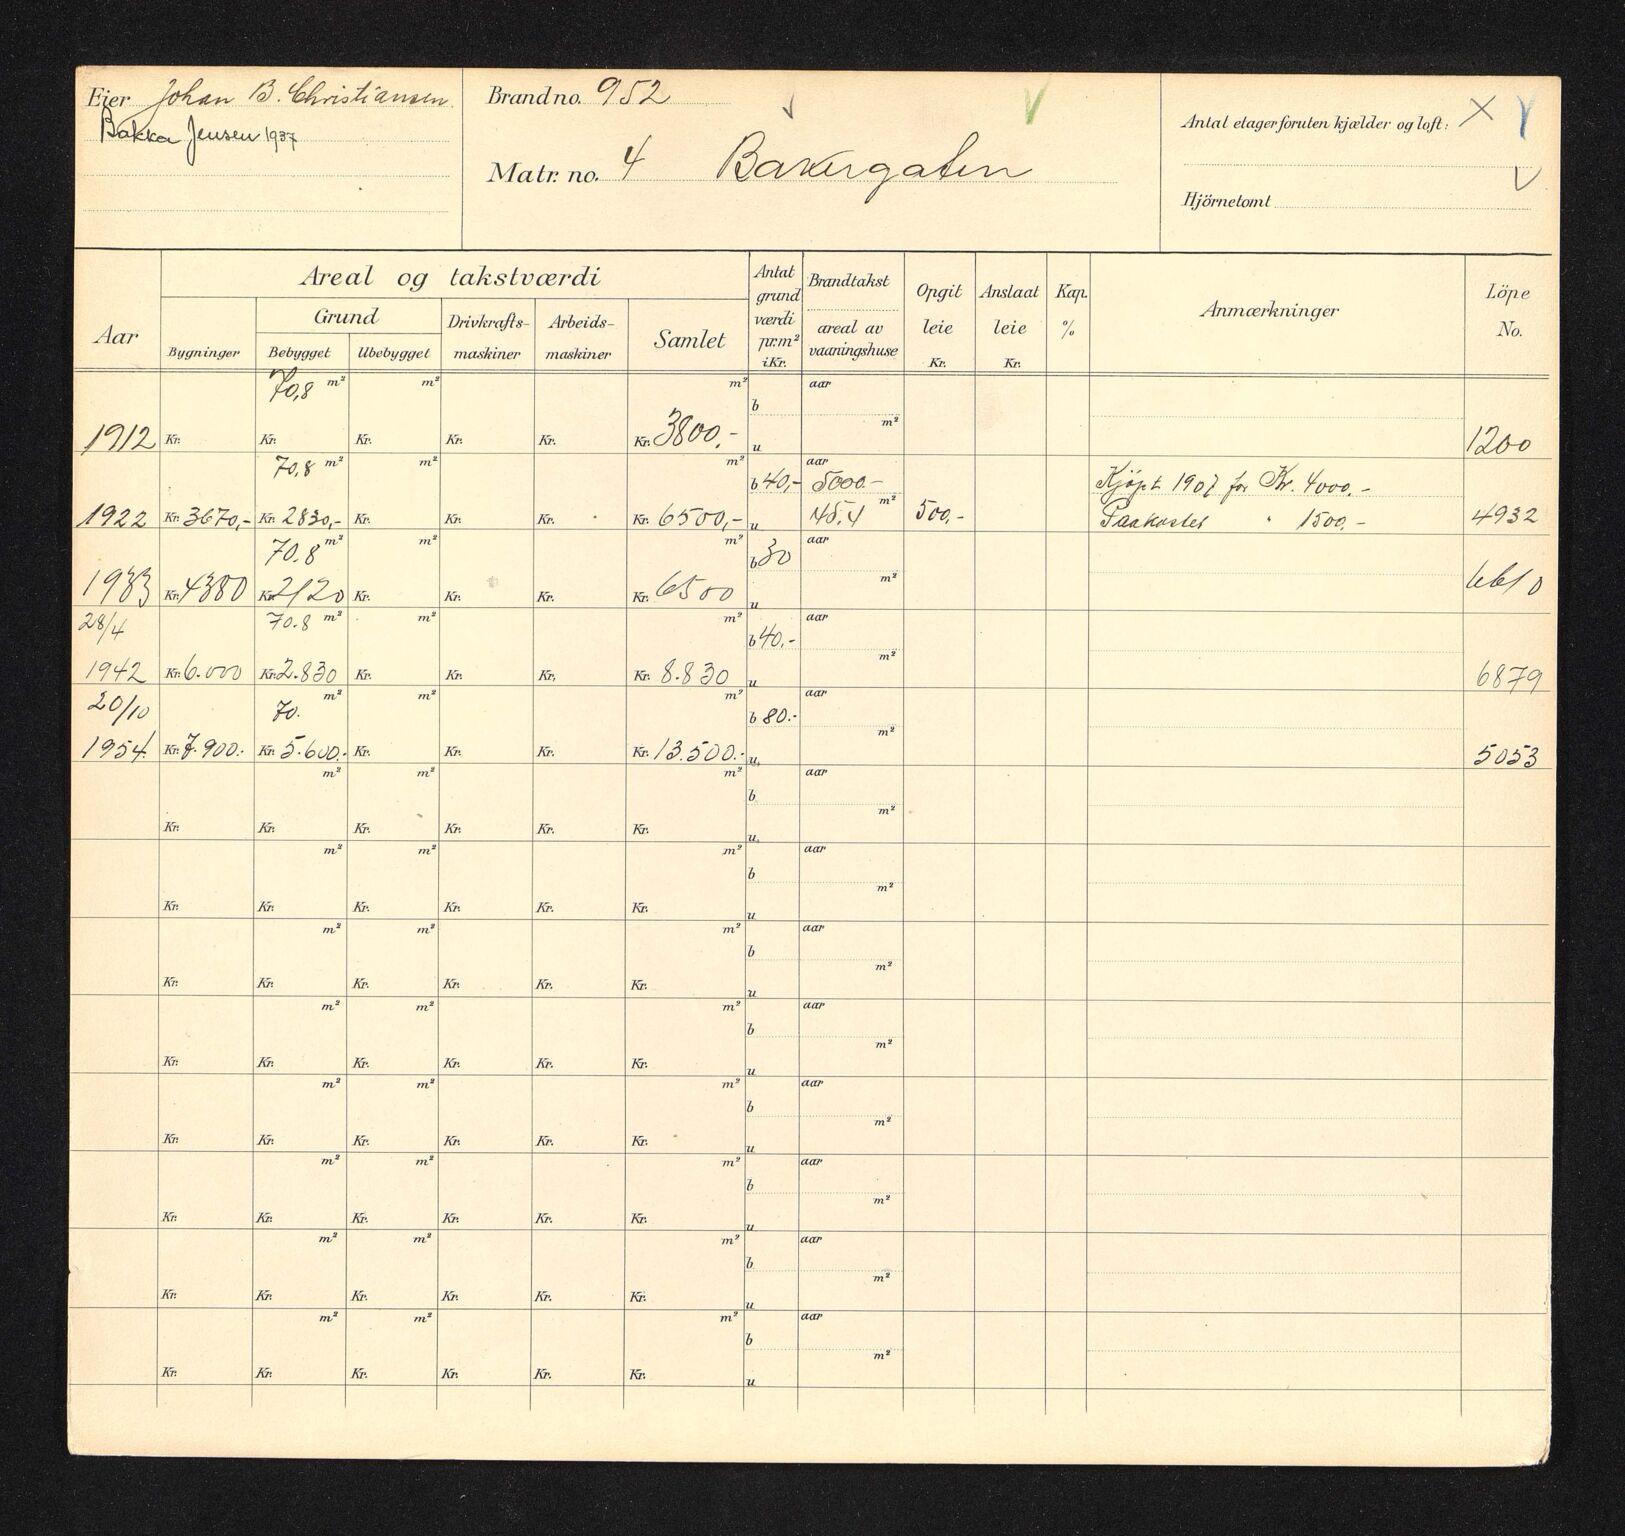 Eier Johan B. Christiansen
Bakka Jensen 1937
Brandno. 952
Matr. no. 4 Bakergaten
Antal etager foruten kjælder og loft: X
Hjörnetomt
Aar
Areal og takstværdi
Bygninger
Grund
Bebygget
Ubebygget
Drivkrafts-
maskiner
Arbeids-
maskiner
Samlet
Antat
grund
værdi
pr.m²
i Kr.
Brandtakst
areal av
vaaningshuse
Opgit
leie
Kr.
Anslaat
leie
Kr.
Kap.
%
Anmærkninger
Löpe
No.
70,8 m² m² m² aar
b
m²
1912 Kr. Kr. Kr. Kr. Kr. Kr. 3800,- u 1200
70,8 m² m² m² aar
b 40,- 5000.- Kjöpt 1907 for Kr. 4000.-
m²
1922 Kr. 3670,- Kr. 2830,- Kr. Kr. Kr. Kr. 6500,- u 45.4 500,- Paakostet " 1500.- 4932
70.8 m² m² m² aar
b 30
m²
1933 Kr. 4380 Kr. 2120 Kr. Kr. Kr. Kr. 6500 u 6610
28/4 70.8 m² m² m² aar
b 40.-
m²
1942 Kr. 6.000 Kr. 2.830 Kr. Kr. Kr. Kr. 8.830 u 6879
20/10 70. m² m² m² aar
b 80.-
m²
1954. Kr. 7.900.- Kr. 5.600.- Kr. Kr. Kr. Kr. 13.500.- u. 5053
m² m² m² aar
b
m²
Kr. Kr. Kr. Kr. Kr. Kr. u.
m² m² m² aar
b
m²
Kr. Kr. Kr. Kr. Kr. Kr. u
m² m² m² aar
b
m²
Kr. Kr. Kr. Kr. Kr. Kr. u
m² m² m² aar
b
m²
Kr. Kr. Kr. Kr. Kr. Kr. u
m² m² m² aar
b
m²
Kr. Kr. Kr. Kr. Kr. Kr. u
m² m² m² aar
b
m²
Kr. Kr. Kr. Kr. Kr. Kr. u
m² m² m² aar
b
m²
Kr. Kr. Kr. Kr. Kr. Kr. u
m² m² m² aar
b
m²
Kr. Kr. Kr. Kr. Kr. Kr. u